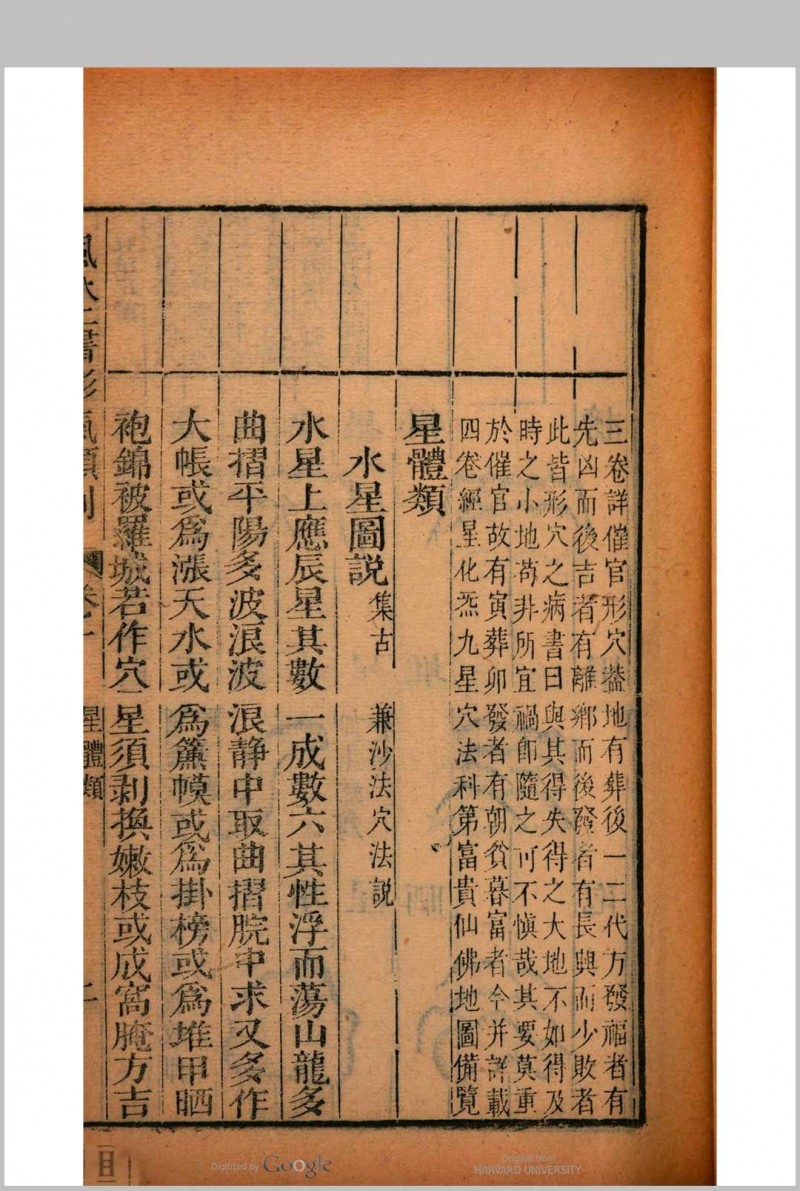 三卷詳催官形穴葢地有葬後一二代方發福者有
先凶而後吉者有離鄉而後發者有長興而少敗者
此皆形穴之病書曰與其得失得之大地不如得及
時之小地茍非所宜禍卽隨之可不慎哉其要莫重
於催官故有寅葬卯發者有朝貧暮富者今并詳載
四卷經星化炁九星穴法科第富貴仙佛地圖備覽
星體類
水星圖説 集古 兼沙法穴法説
水星上應辰星其數一成數六其性浮而蕩山龍多
曲摺平陽多波浪波浪静中取曲摺腕中求又多作
大帳或爲漲天水或爲簾幙或爲掛榜或爲堆甲晒
袍錦被羅城若作穴星須剥換嫩枝或成窩腌方吉
星體類
Digitized by Google
Original from
HARVARD UNIVERSITY